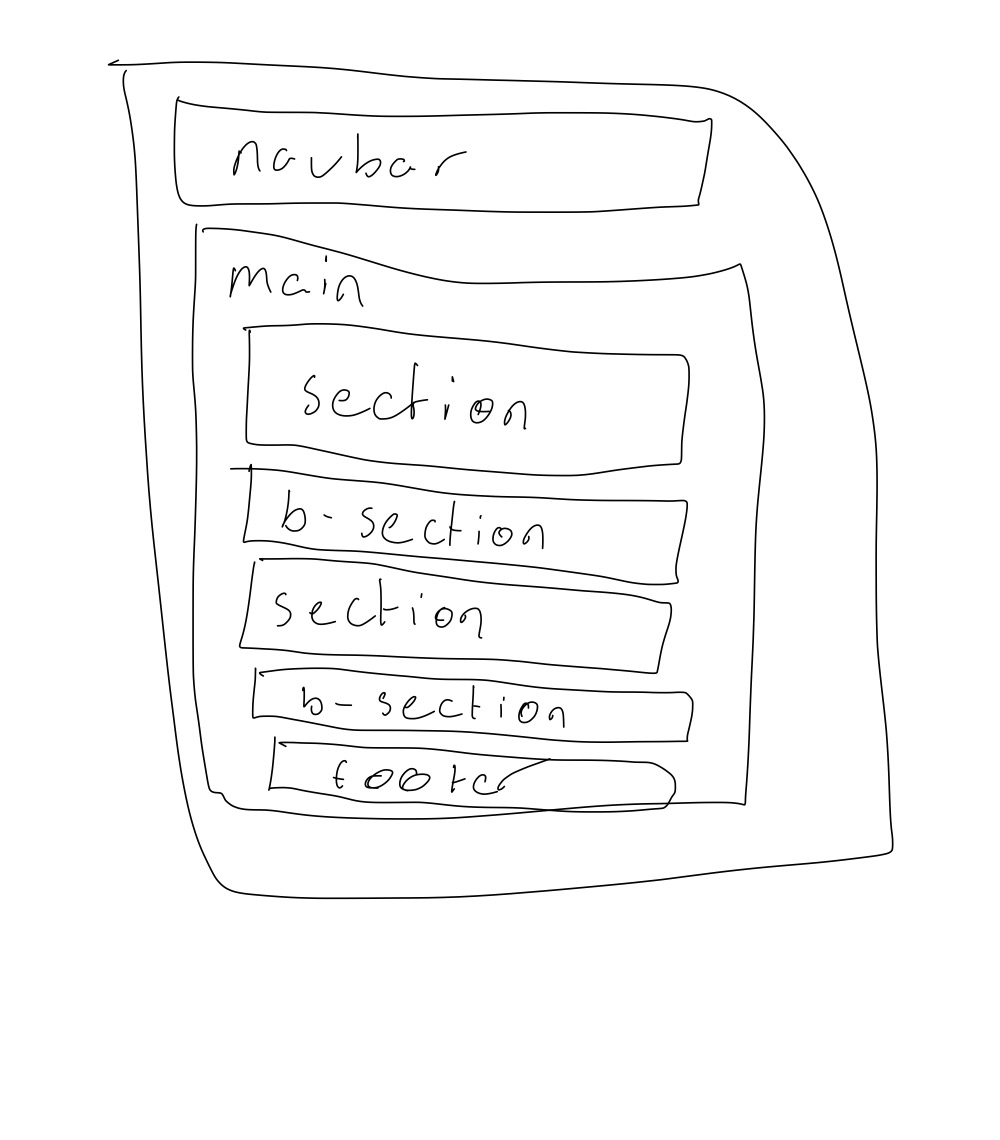 navbar
main
section
b-section
section
b-section
footer